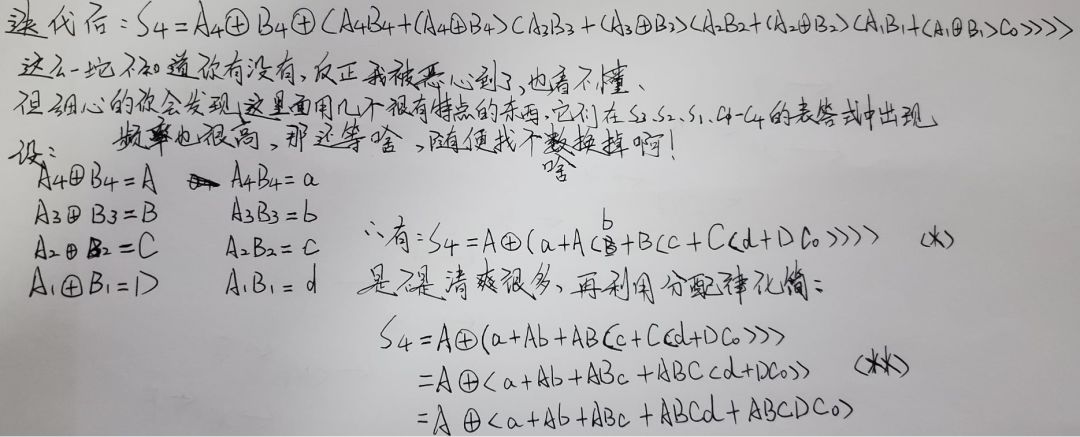 迭代后：S₄=A₄⊕B₄⊕(A₄B₄+(A₄⊕B₄)(A₃B₃+(A₃⊕B₃)(A₂B₂+(A₂⊕B₂)(A₁B₁+(A₁⊕B₁)C₀))))
这么一坨不知道你有没有，反正我被恶心到了，也看不懂、
但细心的你会发现，这里面用几个很有特点的东西，它们在S₃、S₂、S₁、C₁-C₄的表答式中出现
频率也很高，那还等啥，随便找个数换掉啊！
啥
设：
A₄⊕B₄=A A₄B₄=a
A₃⊕B₃=B A₃B₃=b
A₂⊕B₂=C A₂B₂=c
A₁⊕B₁=D A₁B₁=d
∴有：S₄=A⊕(a+A(b+B(c+C(d+DC₀)))) (*)
是不是清爽很多，再利用分配律化简：
S₄=A⊕(a+Ab+AB(c+C(d+DC₀)))
=A⊕(a+Ab+ABc+ABC(d+DC₀)) (**)
=A⊕(a+Ab+ABc+ABCd+ABCDC₀)